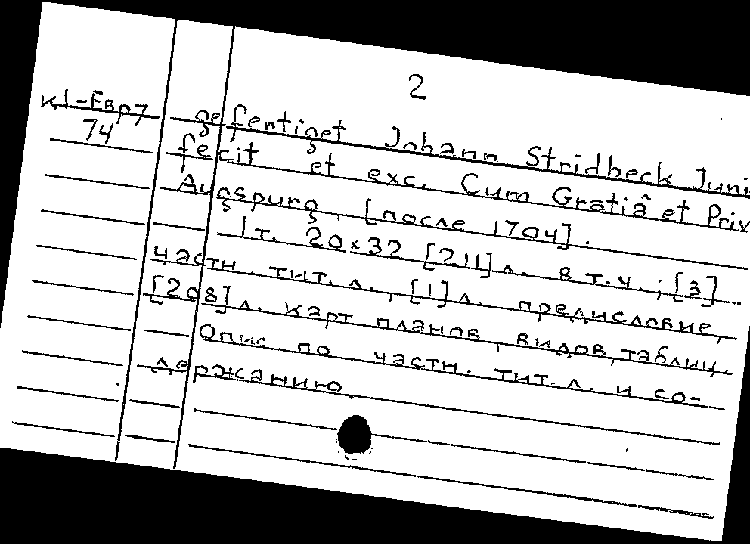 2
к1-Евр7 gefertiget Johann Stridbeck Juni
74 fecit et exc. Cum Gratiâ et Priv
Augspurg, [после 1704].
1т. 20x32 [211]л. в т.ч.; [3]
частн. тит. л., [1]л. предисловие,
[208]л. карт планов, видов, таблиц.
Опис по частн. тит. л. и со-
держанию.